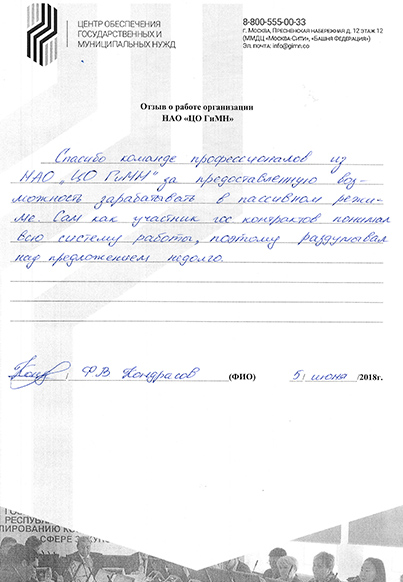 ЦЕНТР ОБЕСПЕЧЕНИЯ
ГОСУДАРСТВЕННЫХ И
МУНИЦИПАЛЬНЫХ НУЖД
8-800-555-00-33
г. Москва, Пресненская набережная д. 12 этаж 12
(ММДЦ «Москва-Сити», «Башня Федерация»)
Эл. почта: info@gimn.co
Отзыв о работе организации
НАО «ЦО ГиМН»
Спасибо команде профессионалов из
НАО „ЦО ГиМН" за предоставленную воз-
можность зарабатывать в пассивном режи-
ме. Сам как участник гос контрактов понимал
всю систему работы, поэтому раздумывал
над предложением недолго.
Ф.В Кондрасов (ФИО) 5 июня /2018г.
РЕСПУБЛ
СФЕРЕ ЗАКУП